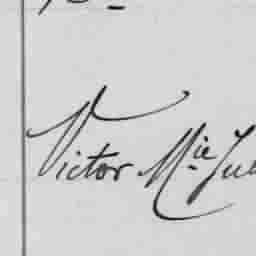 Victor M.ie Jul